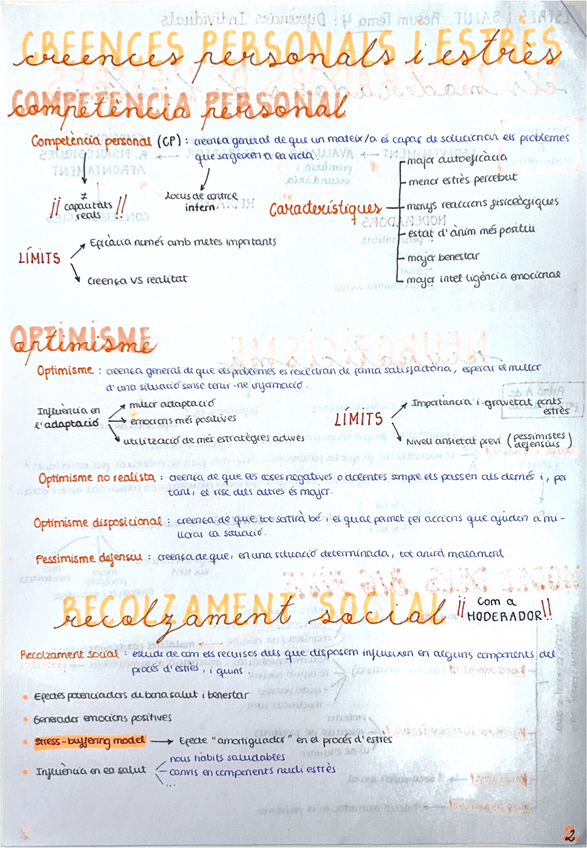 CREENCES PERSONALS I ESTRÈS
creences personals i estrès
COMPETÈNCIA PERSONAL
competència personal
Competència personal (CP) : creença general de que un mateix/a és capaç de solucionar els problemes
que sorgeixen a la vida.
≠
¡¡ capacitats !!
reals
Locus de control
intern
Característiques
major autoeficàcia
menor estrès percebut
menys reaccions fisiològiques
estat d'ànim més positiu
major benestar
major intel·ligència emocional
LÍMITS
Eficàcia només amb metes importants
Creença VS realitat
OPTIMISME
optimisme
Optimisme : creença general de que els problemes es resoldran de forma satisfactòria, esperar el millor
d'una situació sense tenir-ne informació.
Influència en
l'adaptació
millor adaptació
emocions més positives
utilització de més estratègies actives
LÍMITS
Importància i gravetat fonts
estrès
Nivell ansietat previ (pessimistes
defensius)
Optimisme no realista : creença de que les coses negatives o dolentes sempre els passen als demés i, per
tant, el risc dels altres és major.
Optimisme disposicional : creença de que tot sortirà bé, i el qual permet fer accions que ajuden a mi-
llorar la situació.
Pessimisme defensiu : creença de que, en una situació determinada, tot anirà malament.
RECOLZAMENT SOCIAL
recolzament social
¡¡ Com a
MODERADOR!!
Recolzament social : estudi de com els recursos dels que disposem influeixen en alguns components del
procés d'estrès, i quins.
Efectes potenciadors de bona salut i benestar
Generador emocions positives
Stress-buffering model → Efecte "amortiguador" en el procés d'estrès
Influència en la salut
nous hàbits saludables
canvis en components nucli estrès
...
2